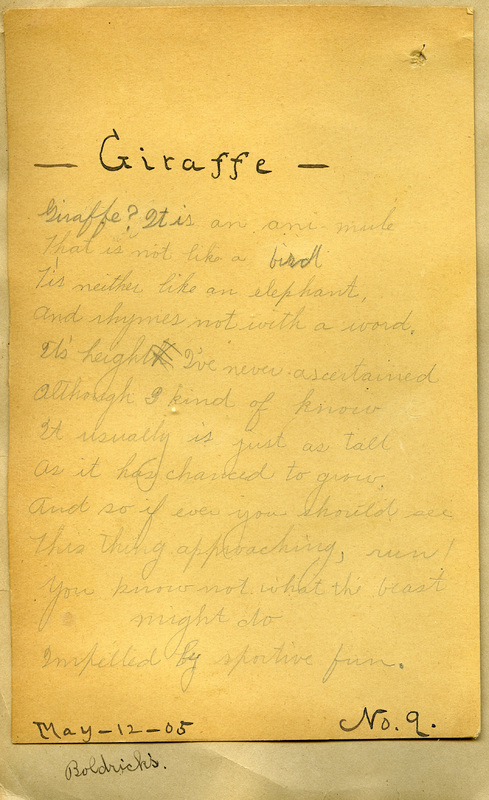 — Giraffe —
Giraffe? It is an ani-mule
That is not like a bird
Tis neither like an elephant,
And rhymes not with a word.
It's height I've never ascertained
Although I kind of know
It usually is just as tall
As it has chanced to grow.
And so if ever you should see
This thing approaching, run!
You know not what the beast
might do
Impelled by sportive fun.
May-12-05 No. 9.
Boldrick's.